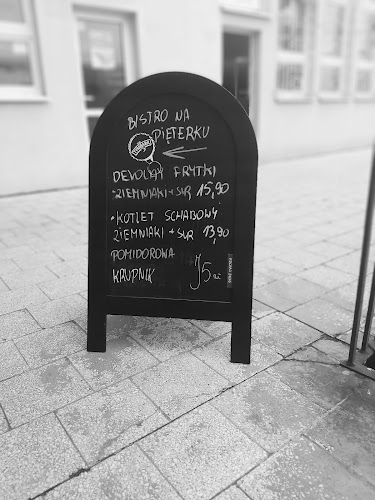 BISTRO NA
PIĘTERKU
DEVOLAY FRYTKI
ZIEMNIAKI + SUR 15,90
• KOTLET SCHABOWY
ZIEMNIAKI + SUR 13,90
POMIDOROWA
KRUPNIK 5 zł